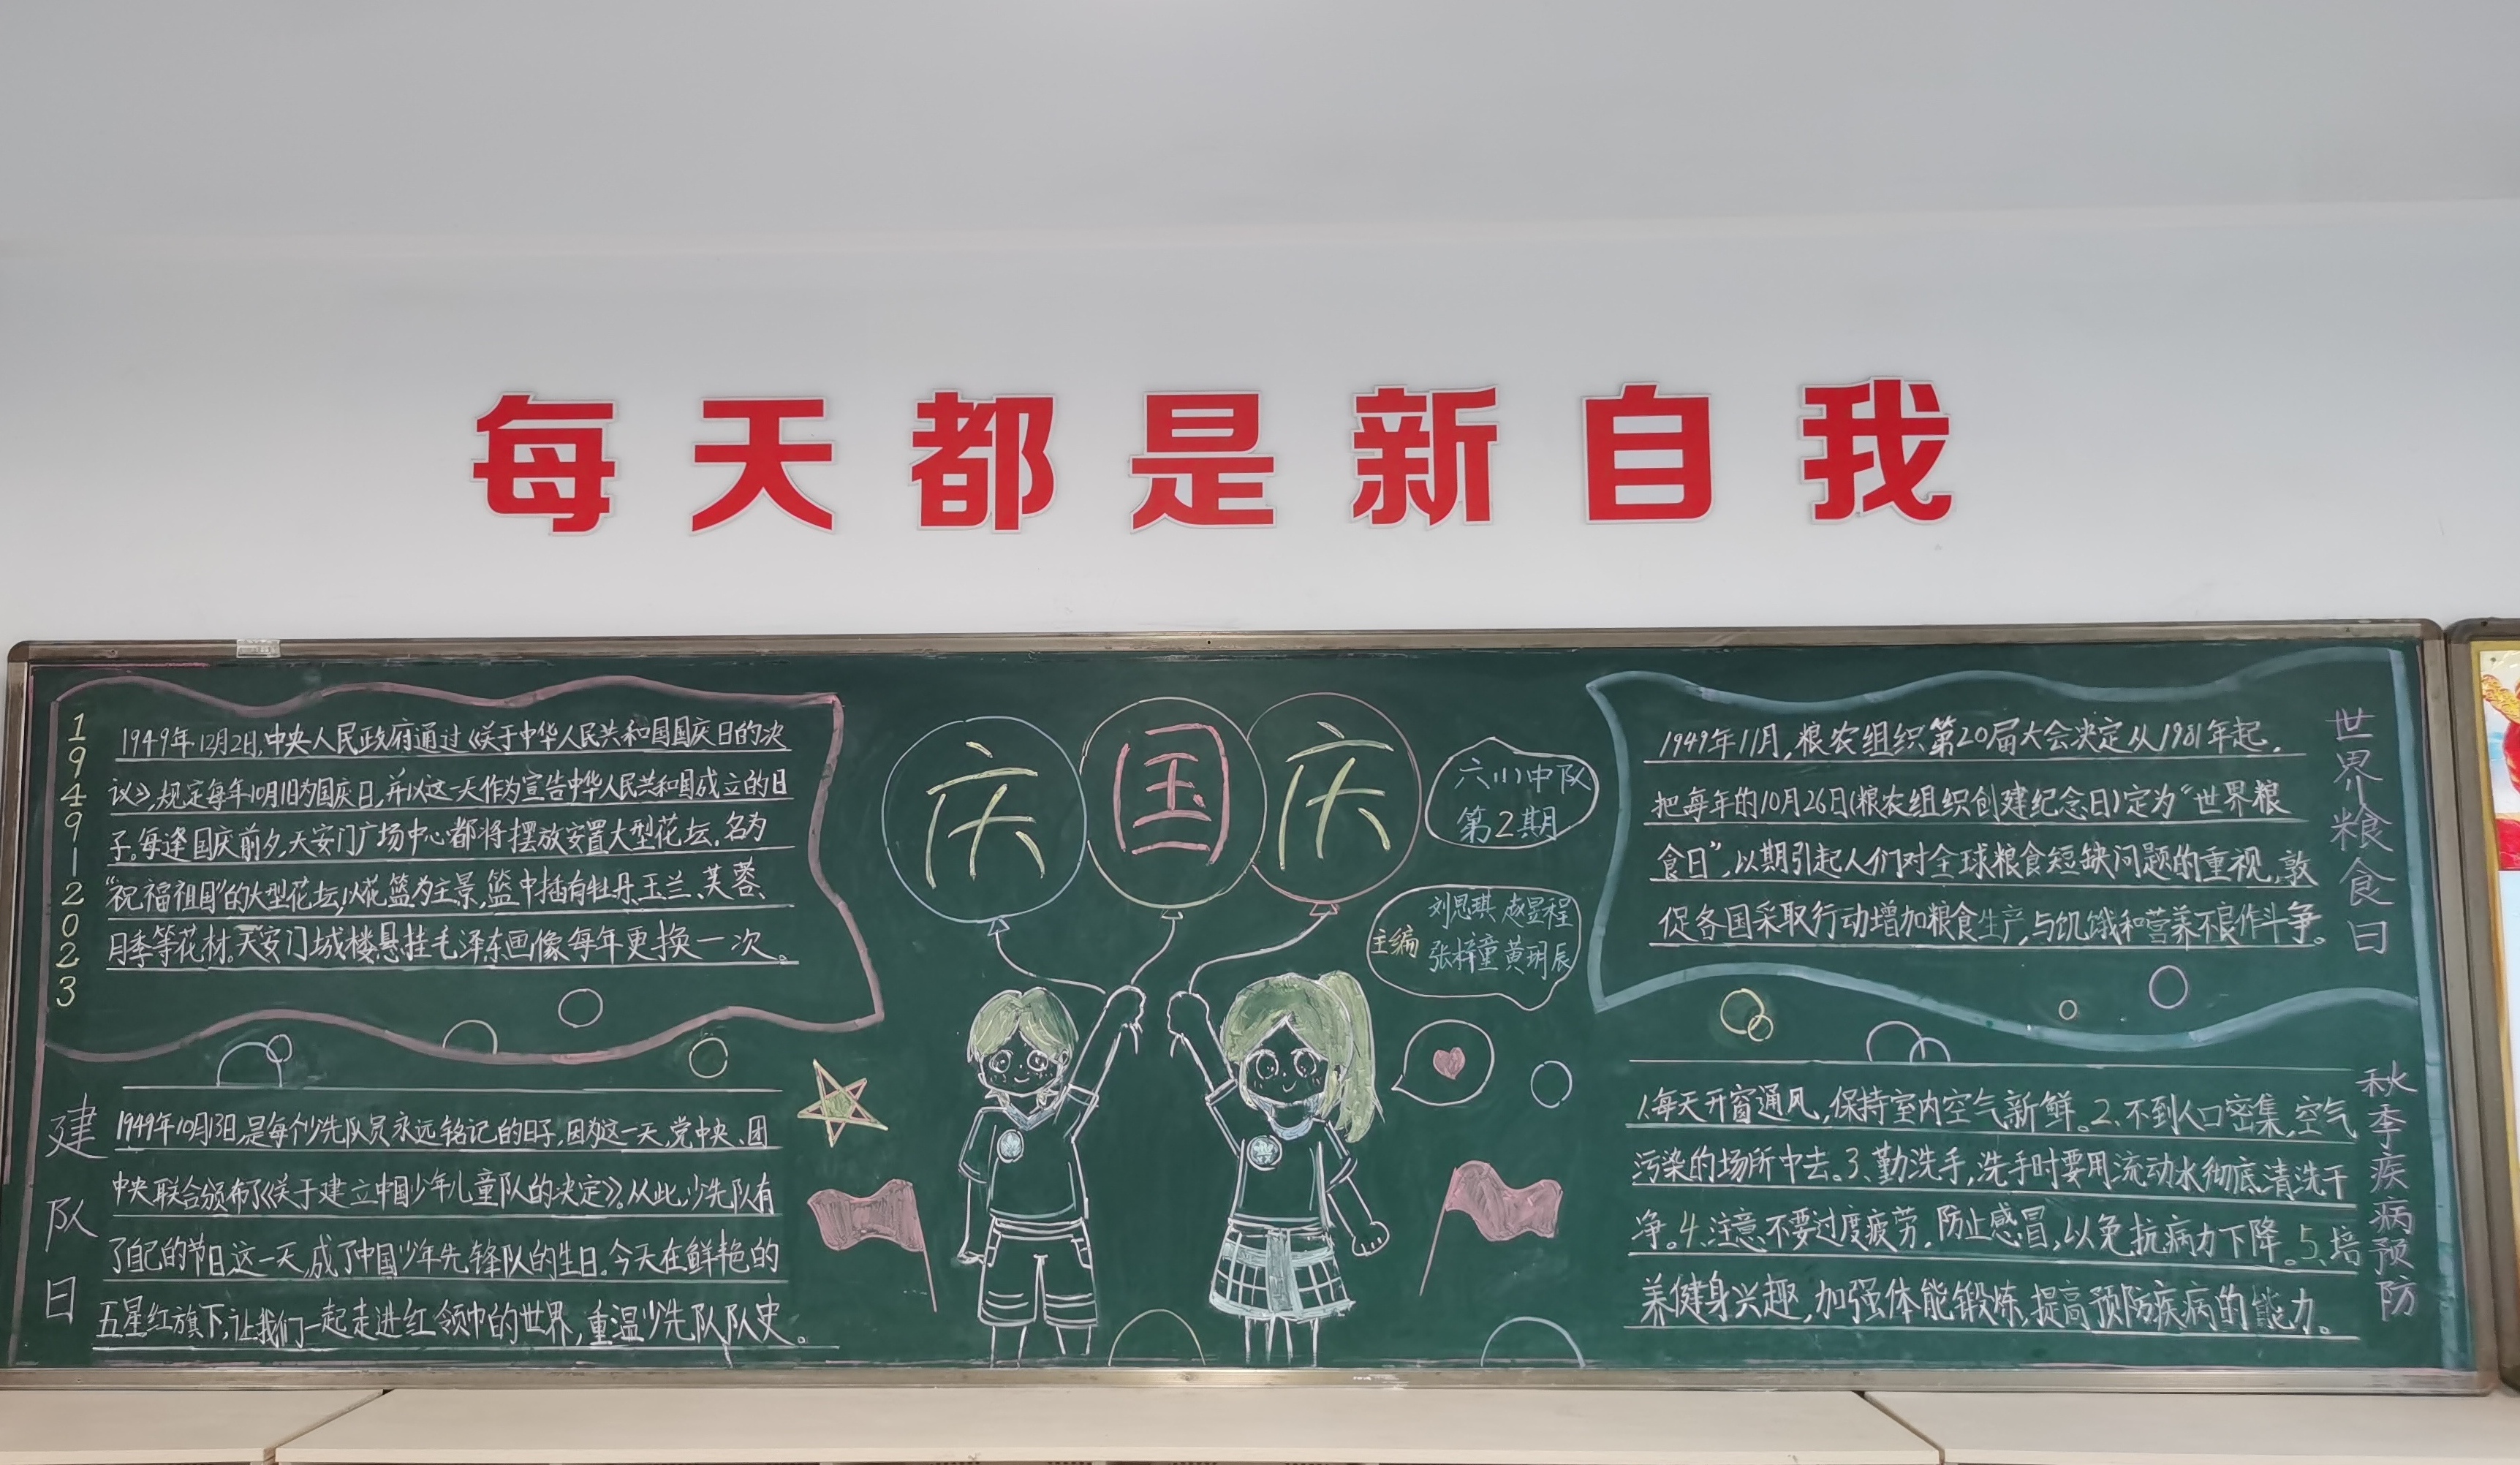 每天都是新自我
1949-2023
1949年12月2日,中央人民政府通过《关于中华人民共和国国庆日的决
议》,规定每年10月1日为国庆日,并以这一天作为宣告中华人民共和国成立的日
子。每逢国庆前夕,天安门广场中心都将摆放安置大型花坛,名为
“祝福祖国”的大型花坛,以花篮为主景,篮中插有牡丹、玉兰、芙蓉、
月季等花材。天安门城楼悬挂毛泽东画像每年更换一次。
建队日
1949年10月13日,是每个少先队员永远铭记的日子,因为这一天,党中央、团
中央联合颁布了《关于建立中国少年儿童队的决定》。从此,少先队有
了自己的节日,这一天,成了中国少年先锋队的生日。今天在鲜艳的
五星红旗下,让我们一起走进红领巾的世界,重温少先队队史。
庆国庆
六(1)中队
第2期
主编
刘思琪 赵昱程
张梓童 黄玥辰
世界粮食日
1949年11月,粮农组织第20届大会决定从1981年起,
把每年的10月26日(粮农组织创建纪念日)定为“世界粮
食日”,以期引起人们对全球粮食短缺问题的重视,敦
促各国采取行动增加粮食生产,与饥饿和营养不良作斗争。
秋季疾病预防
1.每天开窗通风,保持室内空气新鲜。2、不到人口密集,空气
污染的场所中去。3、勤洗手,洗手时要用流动水彻底清洗干
净。4、注意不要过度疲劳,防止感冒,以免抗病力下降。5、培
养健身兴趣,加强体能锻炼,提高预防疾病的能力。